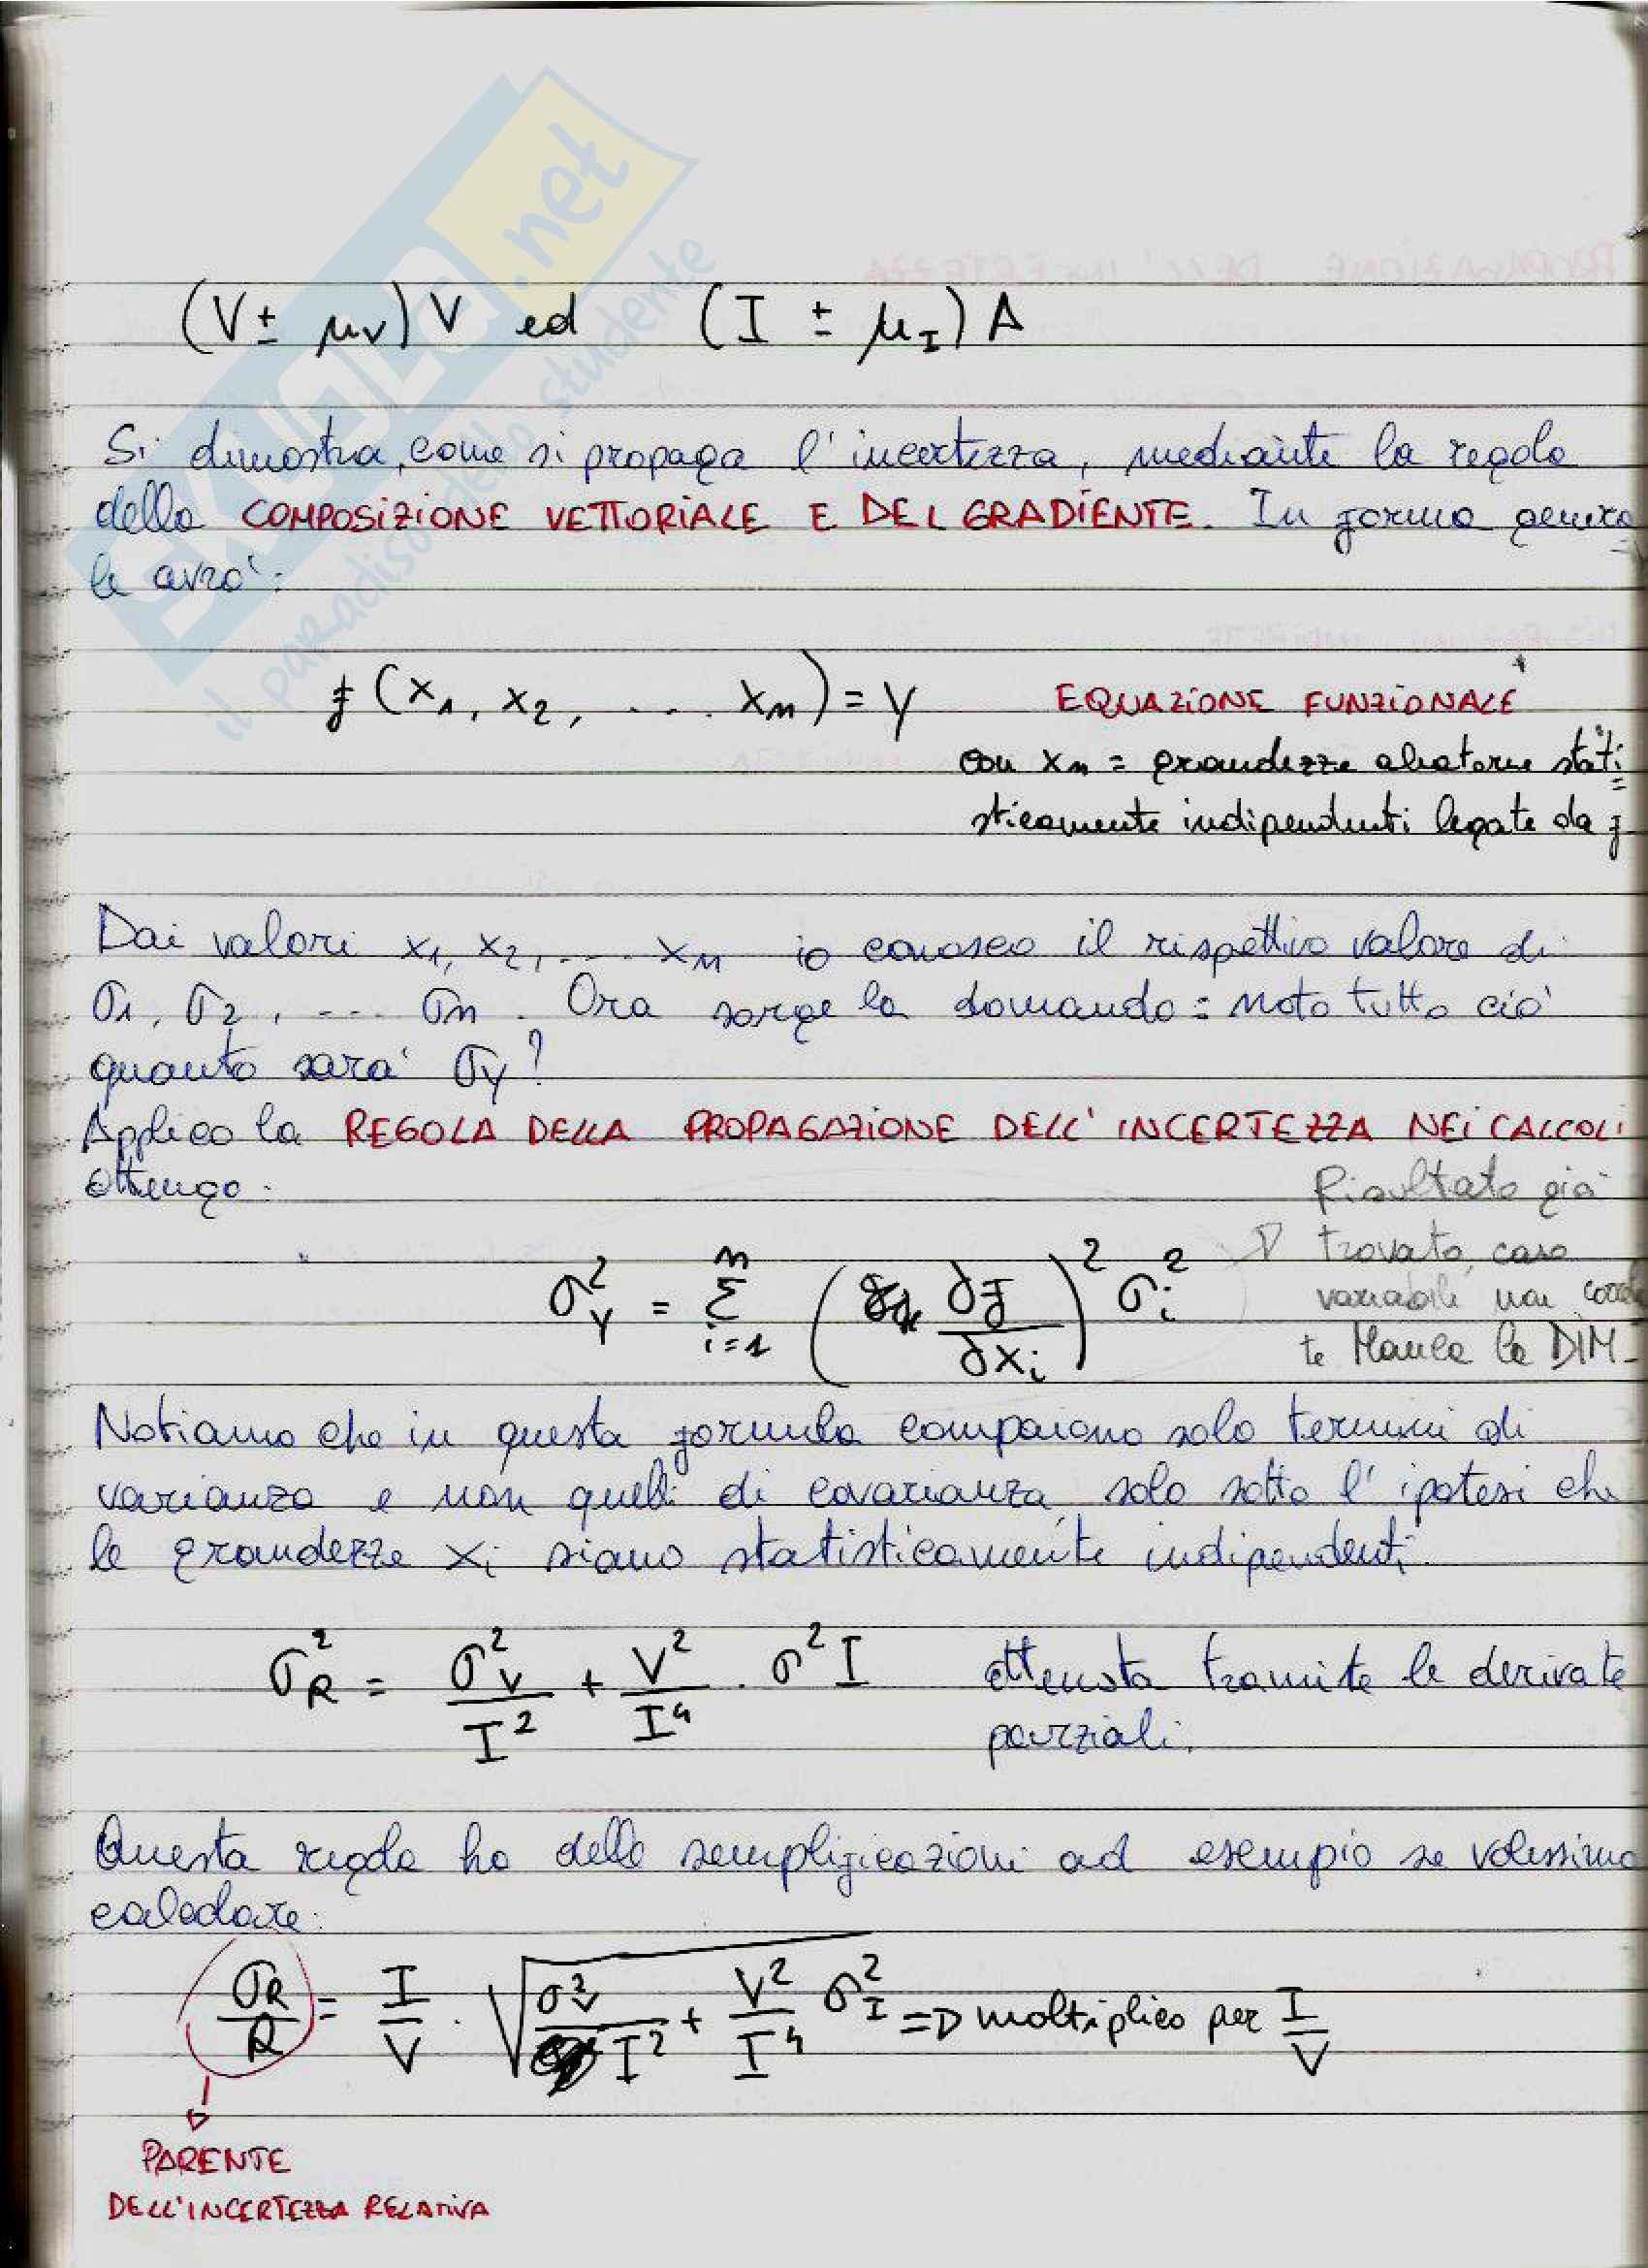 SKUOLA.net
il paradiso dello studente
(V ± μv) V ed (I ± μI) A
Si dimostra, come si propaga l'incertezza, mediante la regola
della COMPOSIZIONE VETTORIALE E DEL GRADIENTE. In forma genera
le avrò:
f (x1, x2, .... xn) = y EQUAZIONE FUNZIONALE
con xn = grandezze aleatorie stati
sticamente indipendenti legate da f
Dai valori x1, x2, .... xn io conosco il rispettivo valore di
σ1, σ2, .... σn. Ora sorge la domanda: noto tutto ciò
quanto sarà σy?
Applico la REGOLA DELLA PROPAGAZIONE DELL'INCERTEZZA NEI CALCOLI
ottengo:
Risultato già
trovato, caso
variabili non correla
te Manca la DIM-
σ²y = Σ (i=1, n) (∂f/∂xi)² σi²
Notiamo che in questa formula compaiono solo termini di
varianza e non quelli di covarianza, solo sotto l'ipotesi che
le grandezze xi siano statisticamente indipendenti.
σ²R = σ²v/I² + V²/I⁴ · σ²I ottenuta tramite le derivate
parziali.
Questa regola ha delle semplificazioni ad esempio se volessimo
calcolare:
σR/R = I/V · √(σ²v/I² + V²/I⁴ σ²I) => moltiplico per I/V
PARENTE
DELL'INCERTEZZA RELATIVA